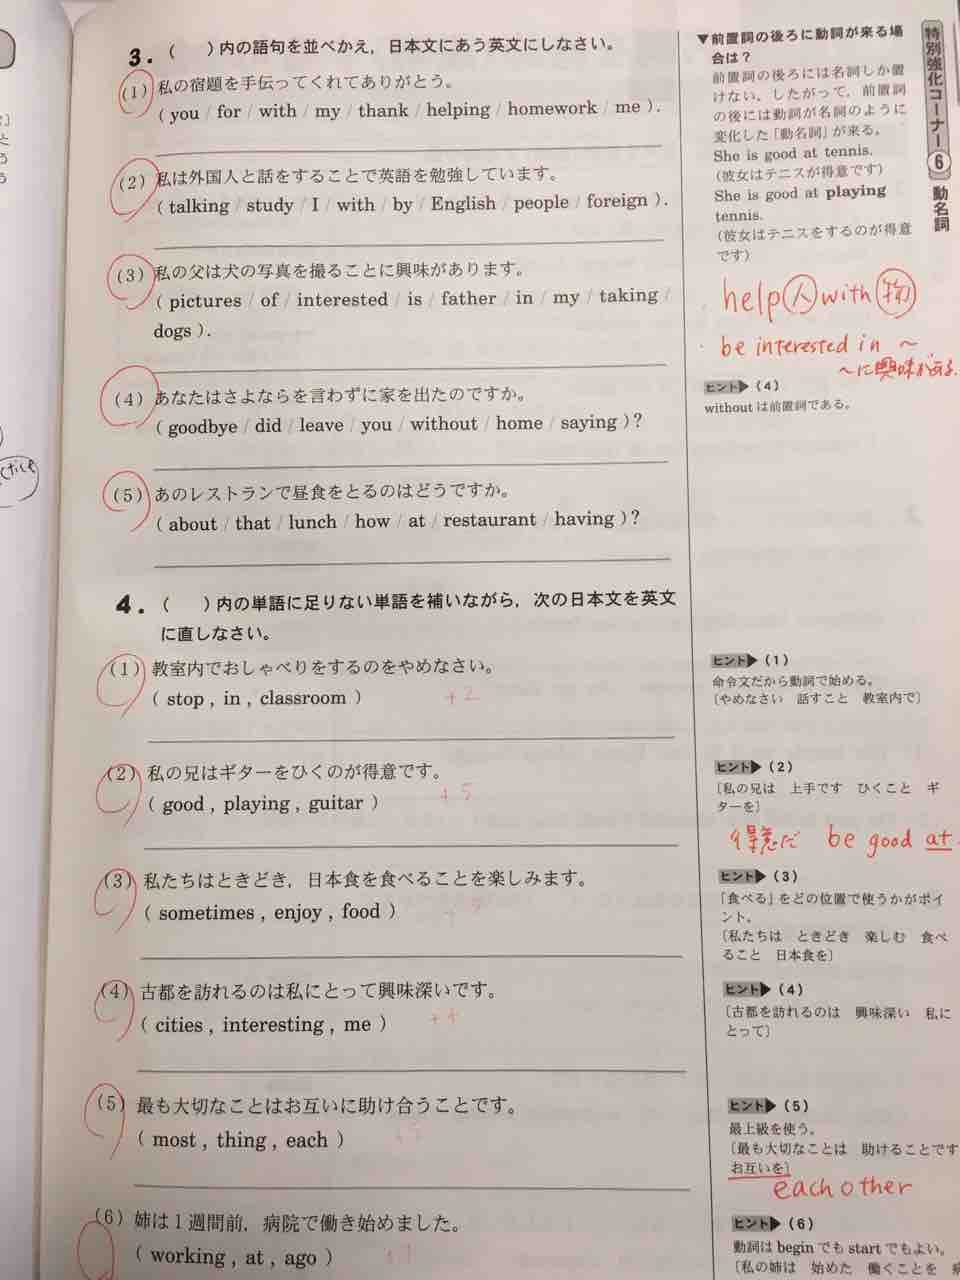 3. (　　)内の語句を並べかえ，日本文にあう英文にしなさい。
(1) 私の宿題を手伝ってくれてありがとう。
( you / for / with / my / thank / helping / homework / me ).
(2) 私は外国人と話をすることで英語を勉強しています。
( talking / study / I / with / by / English / people / foreign ).
(3) 私の父は犬の写真を撮ることに興味があります。
( pictures / of / interested / is / father / in / my / taking /
dogs ).
(4) あなたはさよならを言わずに家を出たのですか。
( goodbye / did / leave / you / without / home / saying )?
(5) あのレストランで昼食をとるのはどうですか。
( about / that / lunch / how / at / restaurant / having )?
4. (　　)内の単語に足りない単語を補いながら，次の日本文を英文
に直しなさい。
(1) 教室内でおしゃべりをするのをやめなさい。
( stop , in , classroom )
+2
(2) 私の兄はギターをひくのが得意です。
( good , playing , guitar )
+5
(3) 私たちはときどき，日本食を食べることを楽しみます。
( sometimes , enjoy , food )
(4) 古都を訪れるのは私にとって興味深いです。
( cities , interesting , me )
+4
(5) 最も大切なことはお互いに助け合うことです。
( most , thing , each )
(6) 姉は1週間前，病院で働き始めました。
( working , at , ago )
▼前置詞の後ろに動詞が来る場
合は？
前置詞の後ろには名詞しか置
けない。したがって，前置詞
の後には動詞が名詞のように
変化した「動名詞」が来る。
She is good at tennis.
(彼女はテニスが得意です)
She is good at playing
tennis.
(彼女はテニスをするのが得意
です)
help 人 with 物
be interested in ～
～に興味がある
ヒント▶ (4)
without は前置詞である。
ヒント▶ (1)
命令文だから動詞で始める。
〔やめなさい　話すこと　教室内で〕
ヒント▶ (2)
〔私の兄は　上手です　ひくこと　ギ
ターを〕
得意だ be good at
ヒント▶ (3)
「食べる」をどの位置で使うかがポイ
ント。
〔私たちは　ときどき　楽しむ　食べ
ること　日本食を〕
ヒント▶ (4)
〔古都を訪れるのは　興味深い　私に
とって〕
ヒント▶ (5)
最上級を使う。
〔最も大切なことは　助けることです
お互いを〕
each other
ヒント▶ (6)
動詞は begin でも start でもよい。
〔私の姉は　始めた　働くことを
特別強化コーナー⑥ 動名詞